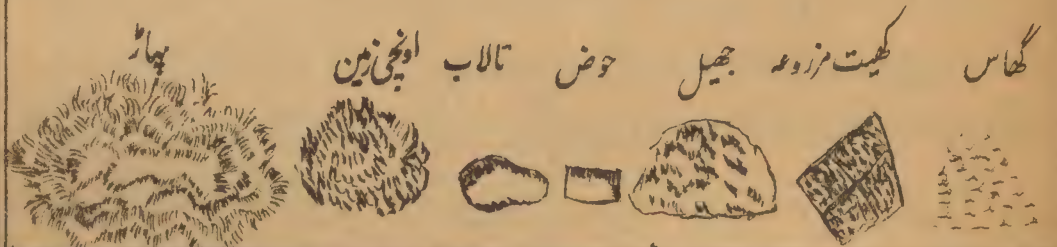 گھاس کھیت مزروعہ جھیل حوض تالاب اونچی زمین پہاڑ